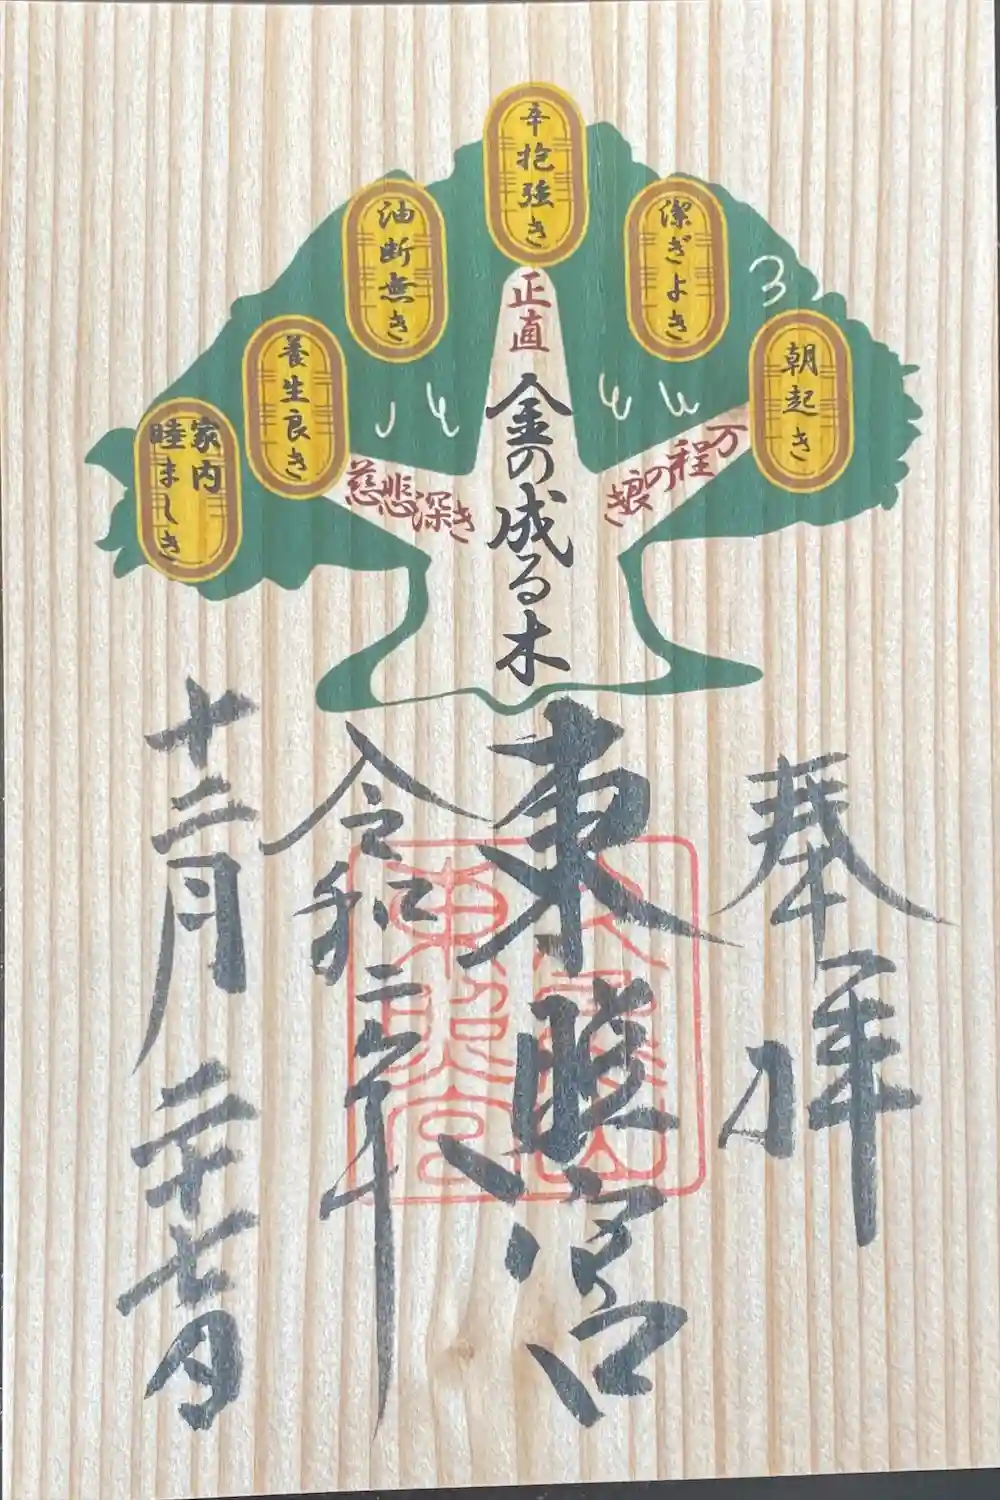 朝起き
潔ぎよき
辛抱強き
油断無き
養生良き
家内
睦ましき
万程の良き
正直
慈悲深き
金の成る木
奉拝
東照宮
令和二年
十二月二十七日
久能山
東照宮